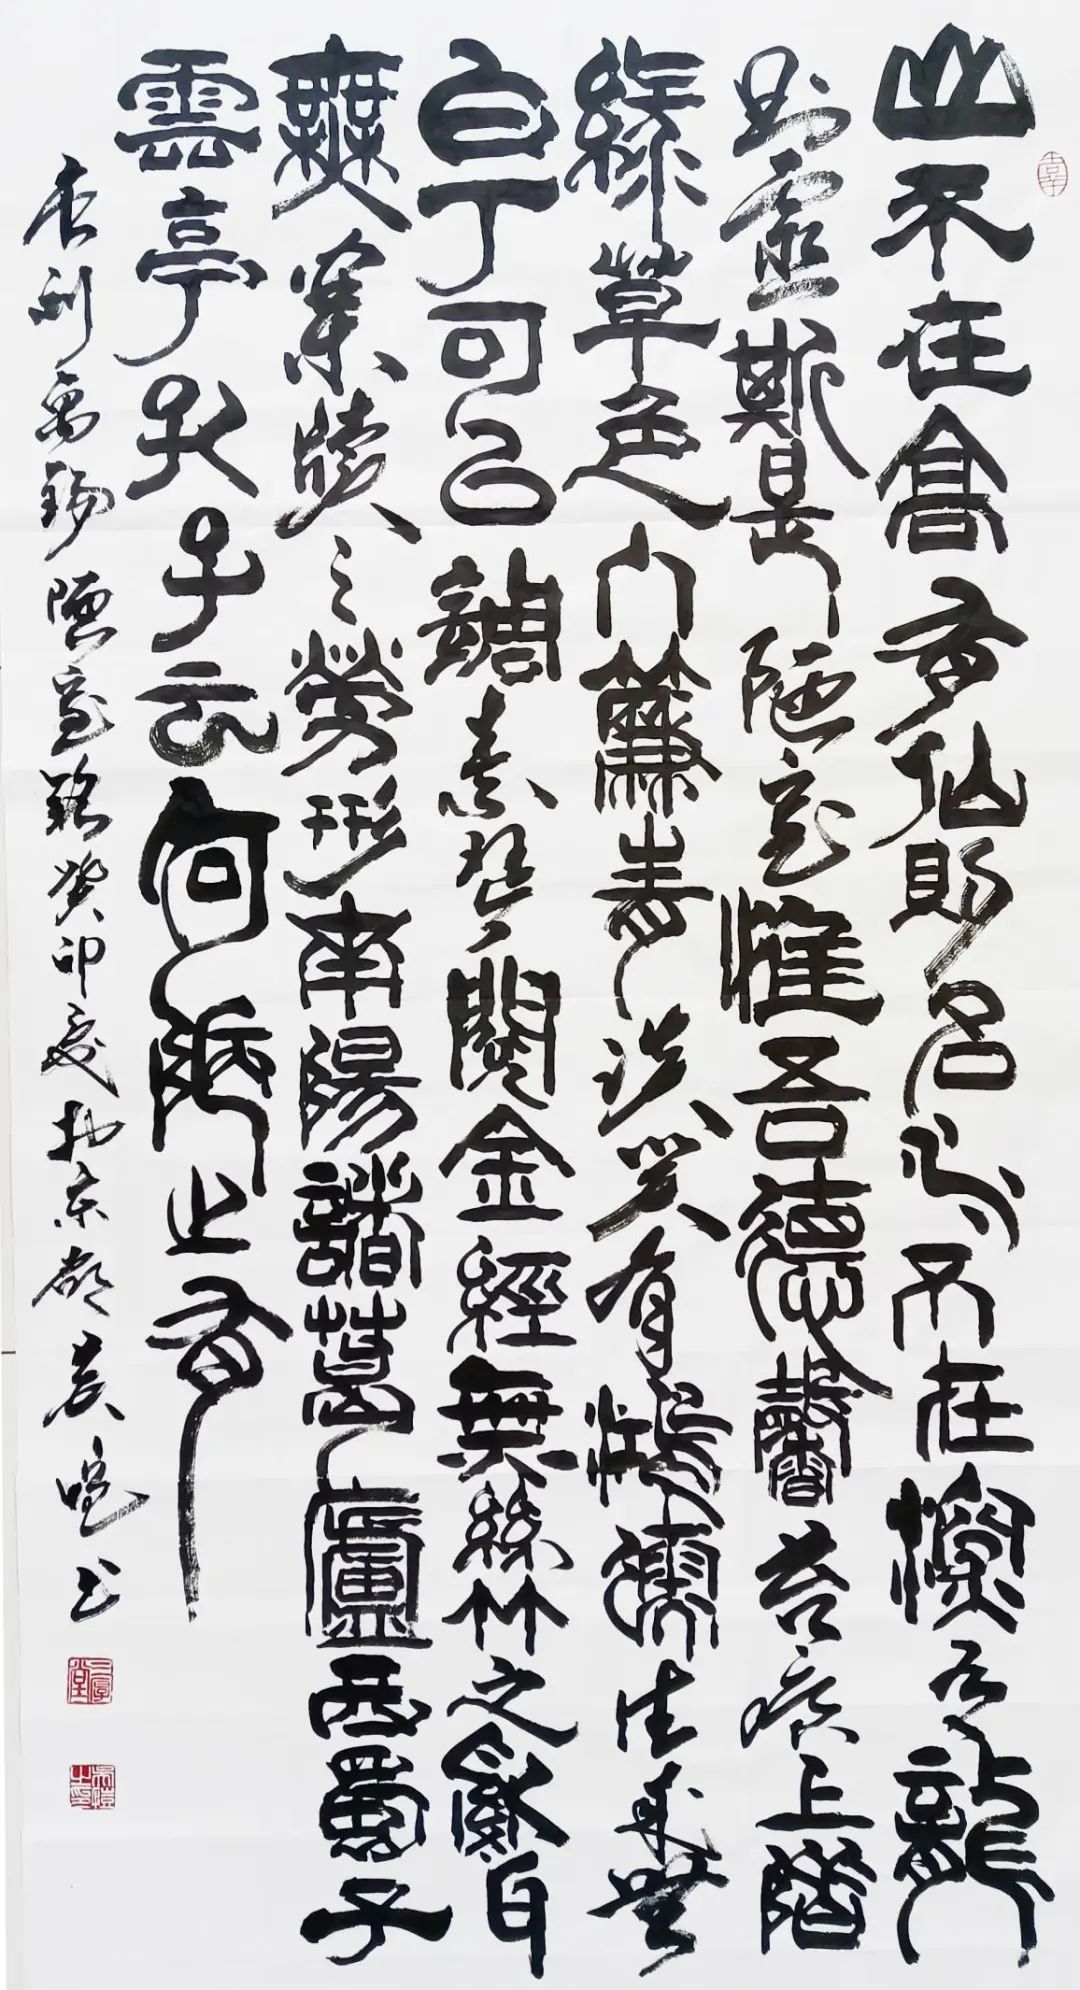 山不在高有仙則名水不在深有龍
則靈斯是陋室惟吾德馨苔痕上階
綠草色入簾青談笑有鴻儒往來無
白丁可以調素琴閱金經無絲竹之亂耳
無案牘之勞形南陽諸葛廬西蜀子
雲亭孔子云何陋之有
唐刘禹錫陋室銘癸卯夏於京都书